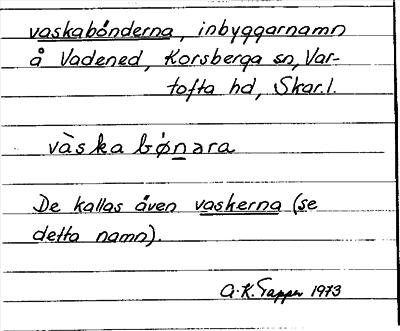 vaskabönderna, inbyggarnamn
å Vadened, Korsberga sn, Var-
tofta hd, Skar.l.
vàska bǿnara
De kallas även vaskerna (se
detta namn).
A.K. Tapper 1973